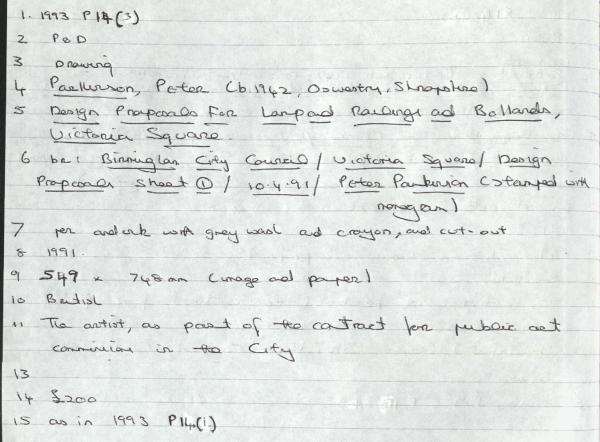 1. 1993 P14(3)
2 P&D
3 Drawing
4 Parkinson, Peter (b.1942, Oswestry, Shropshire)
5 Design Proposals For Lamp and Railings and Bollards,
Victoria Square
6 be: Birmingham City Council / Victoria Square / Design
Proposals Sheet ① / 10.4.91 / Peter Parkinson (stamped with
monogram)
7 pen and ink with grey wash and crayon, and cut-out
8 1991.
9 549 x 748mm (image and paper)
10 British
11 The artist, as part of the contract for public art
commission in the City
13
14 £200
15 as in 1993 P14.(1.)